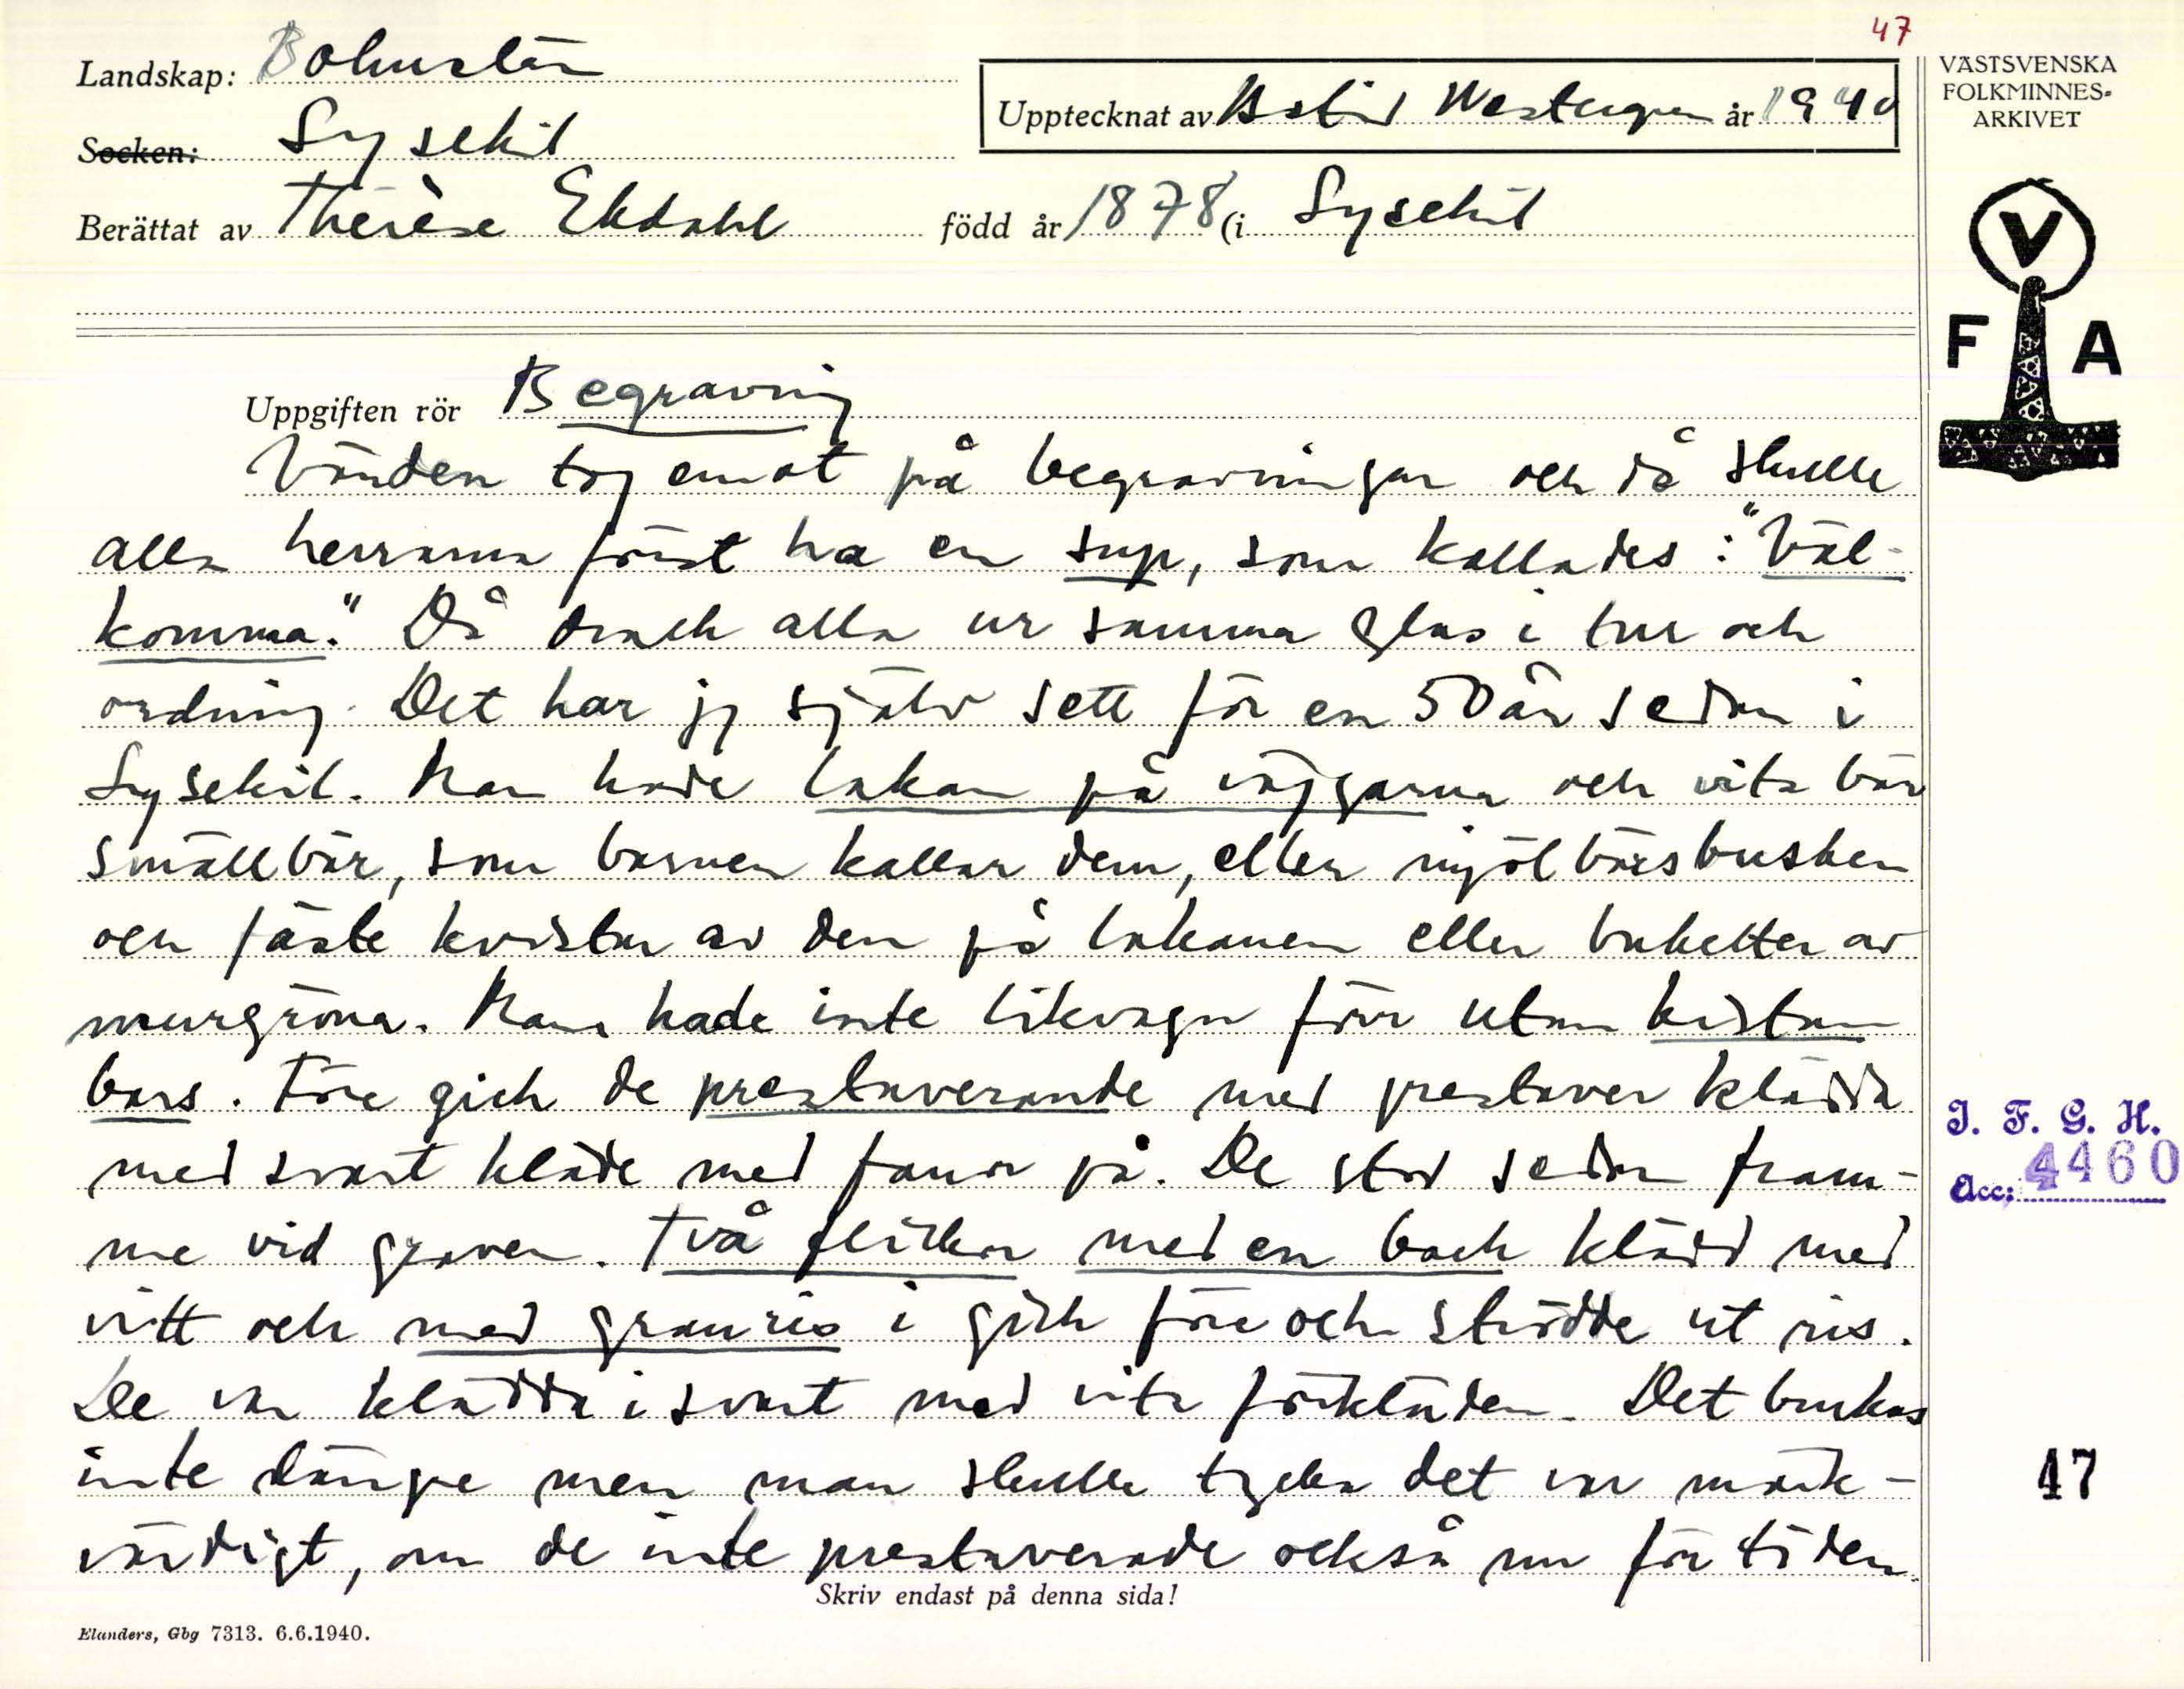 47
Landskap: Bohuslän
Socken: Lysekil
Upptecknat av Astrid Westergren år 1940
Berättat av Therèse Ekdahl född år 1878 (i Lysekil
VÄSTSVENSKA
FOLKMINNES-
ARKIVET
V
F A
Uppgiften rör Begravning
Värden tog emot på begravningar och då skulle
alla herrarna först ha en sup, som kallades: "Väl-
komma." Då drack alla ur samma glas i tur och
ordning. Det har jg själv sett för en 50 år sedan i
Lysekil. Man hade lakan på väggarna och vita bär
smällbär, som barnen kallar dem, eller mjölbärsbusken
och fäste kvistar av den på lakanen eller buketter av
murgröna. Man hade inte likvagn förr utan kistan
bars. Före gick de prestaverande med prestaver klädda
med svart kläde med fanor på. De stod sedan fram-
me vid graven. Två flickor med en back klädd med
vitt och med granris i gick före och strödde ut ris.
De var klädda i svart med vita förkläden. Det brukas
inte länge men man skulle tycka det var märk-
värdigt, om de inte prestaverade också nu för tiden.
Skriv endast på denna sida!
Elanders, Gbg 7313. 6.6.1940.
I. F. G. H.
Acc: 4460
47